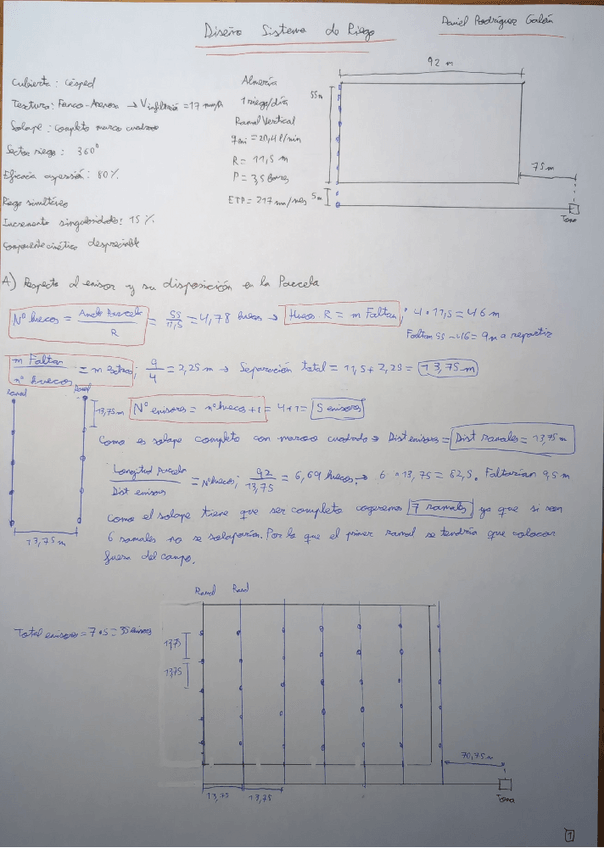 Diseño Sistema de Riego
Daniel Rodríguez Galán
Cubierta: Césped
Textura: Franco-Arenosa → Vinfiltración = 17 mm/h
Solape: Completo marco cuadrado
Sector riego: 360°
Eficacia aspersión: 80%
Riego simultáneo
Incremento singularidades: 15%
Componente cinético despreciable
Almería
1 riego/día
Ramal Vertical
= 20,4 l/min
R = 11,5 m
P = 3,5 Bares
ETP = 217 mm/mes
92 m
55m
75m
5m
Toma
A) Respecto al emisor y su disposición en la Parcela
Nº huecos = Ancho Parcela / R = 55/11,5 = 4,78 huecos → Huecos · R = m Faltan; 4 · 11,5 = 46 m
Faltan 55 - 46 = 9 m a repartir
m Faltan / nº huecos = m extras; 9/4 = 2,25 m → Separación total = 11,5 + 2,25 = 13,75 m
Ramal
Ramal
13,75m
Nº emisores = nº huecos + 1 = 4 + 1 = 5 emisores
Como es solape completo con marco cuadrado → Dist emisores = Dist ramales = 13,75 m
Longitud parcela / Dist emisores = Nº huecos; 92/13,75 = 6,69 huecos → 6 · 13,75 = 82,5. Faltarían 9,5 m
Como el solape tiene que ser completo cogeremos 7 ramales ya que si son
6 ramales no se solaparía. Por lo que el primer ramal se tendría que colocar
fuera del campo.
13,75 m
Ramal
Ramal
Total emisores = 7 · 5 = 35 emisores
13,75
13,75
70,75m
Toma
13,75
13,75
1